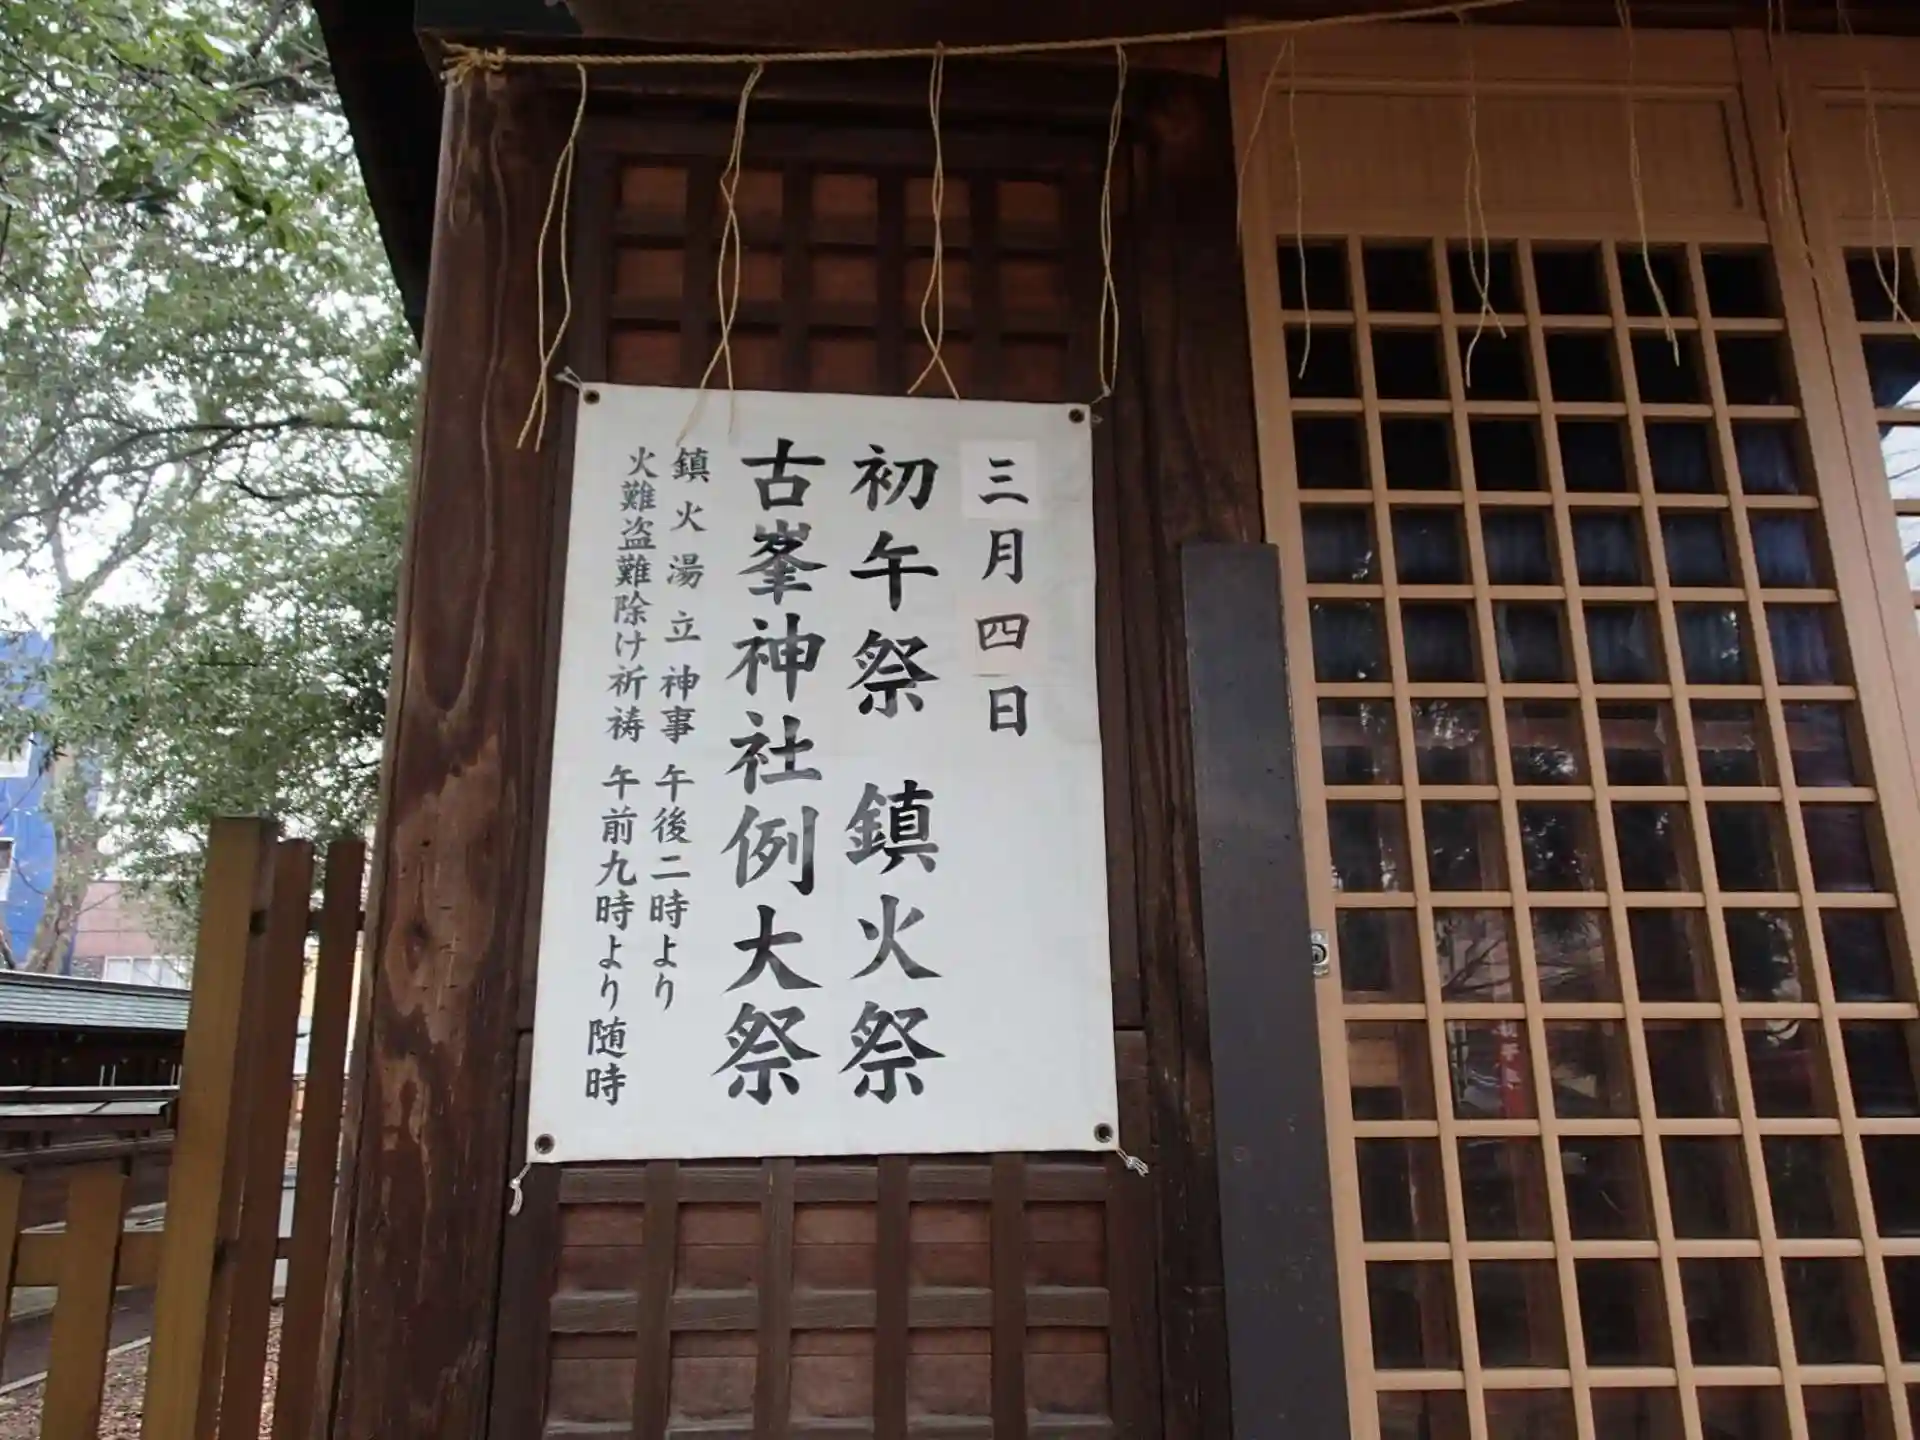 三月四日
初午祭 鎮火祭
古峯神社例大祭
鎮火湯立神事 午後二時より
火難盗難除け祈祷 午前九時より随時